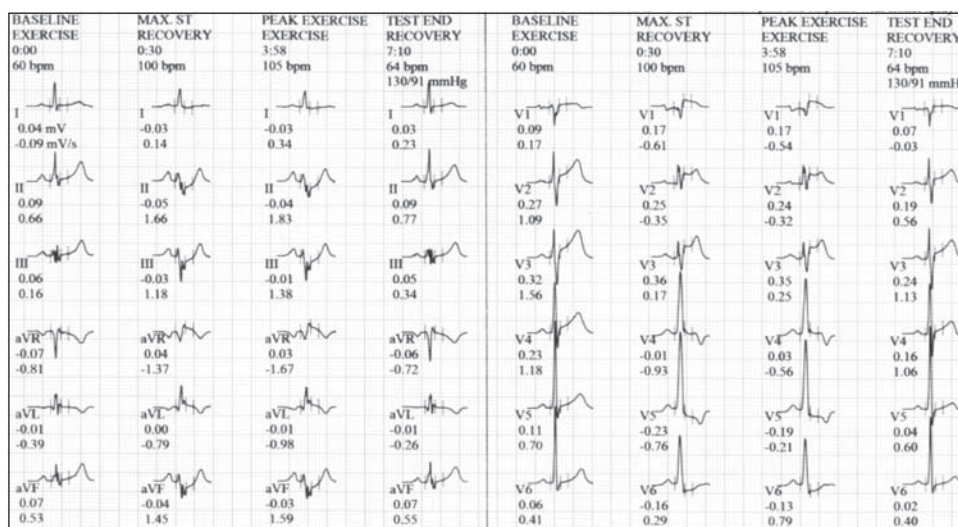 BASELINE
EXERCISE
0:00
60 bpm
I
0.04 mV
-0.09 mV/s
II
0.09
0.66
III
0.06
0.16
aVR
-0.07
-0.81
aVL
-0.01
-0.39
aVF
0.07
0.53
MAX. ST
RECOVERY
0:30
100 bpm
I
-0.03
0.14
II
-0.05
1.66
III
-0.03
1.18
aVR
0.04
-1.37
aVL
0.00
-0.79
aVF
-0.04
1.45
PEAK EXERCISE
EXERCISE
3:58
105 bpm
I
-0.03
0.34
II
-0.04
1.83
III
-0.01
1.38
aVR
0.03
-1.67
aVL
-0.01
-0.98
aVF
-0.03
1.59
TEST END
RECOVERY
7:10
64 bpm
130/91 mmHg
I
0.03
0.23
II
0.09
0.77
III
0.05
0.34
aVR
-0.06
-0.72
aVL
-0.01
-0.26
aVF
0.07
0.55
BASELINE
EXERCISE
0:00
60 bpm
V1
0.09
0.17
V2
0.27
1.09
V3
0.32
1.56
V4
0.23
1.18
V5
0.11
0.70
V6
0.06
0.41
MAX. ST
RECOVERY
0:30
100 bpm
V1
0.17
-0.61
V2
0.25
-0.35
V3
0.36
0.17
V4
-0.01
-0.93
V5
-0.23
-0.76
V6
-0.16
0.29
PEAK EXERCISE
EXERCISE
3:58
105 bpm
V1
0.17
-0.54
V2
0.24
-0.32
V3
0.35
0.25
V4
0.03
-0.56
V5
-0.19
-0.21
V6
-0.13
0.79
TEST END
RECOVERY
7:10
64 bpm
130/91 mmHg
V1
0.07
-0.03
V2
0.19
0.56
V3
0.24
1.13
V4
0.16
1.06
V5
0.04
0.60
V6
0.02
0.40